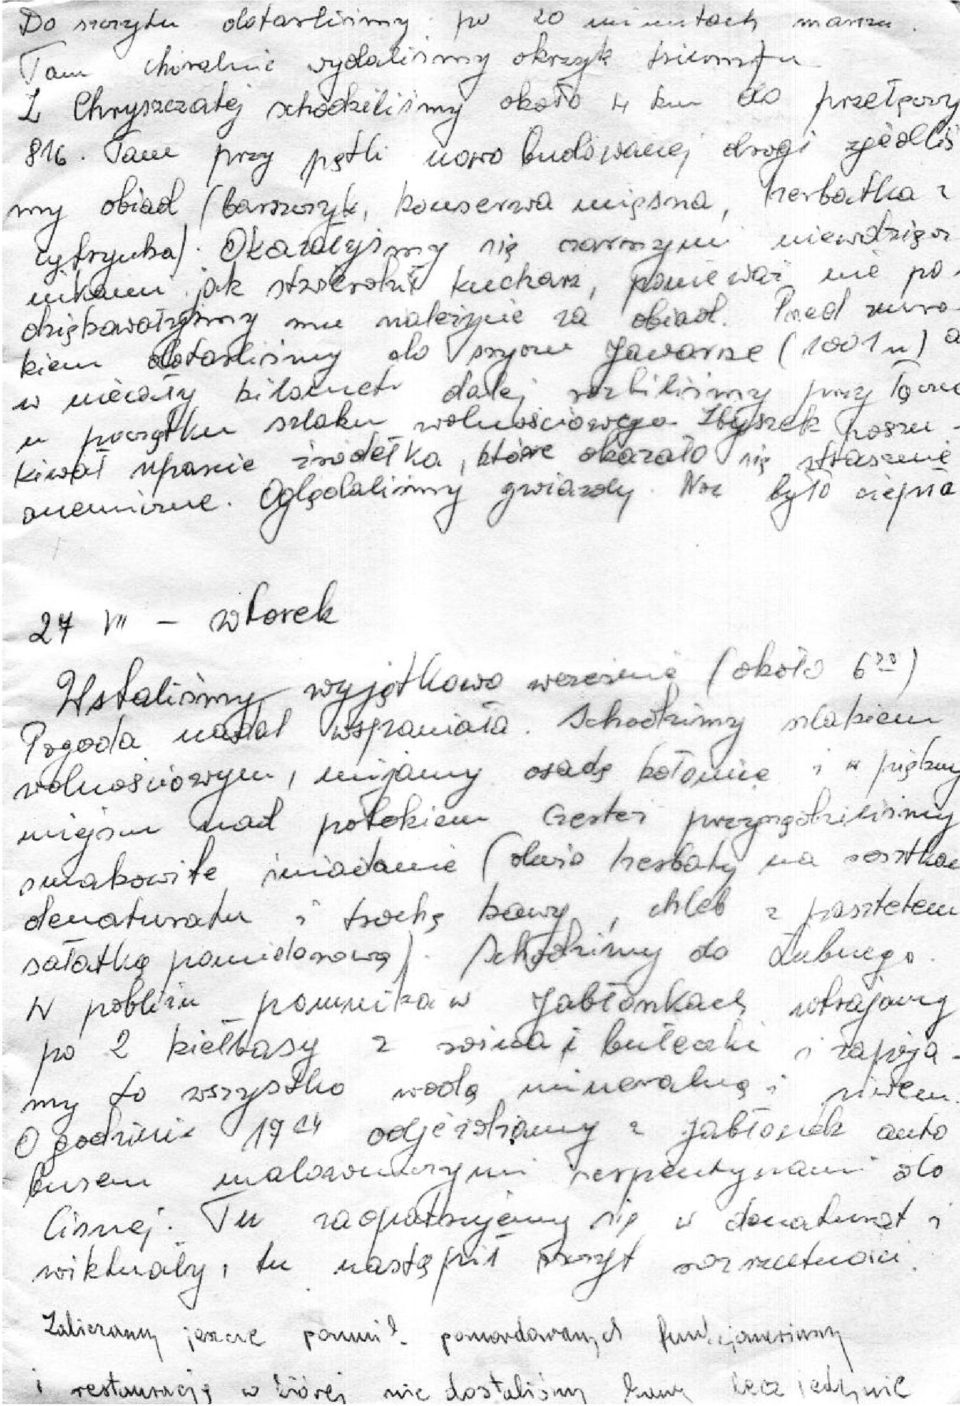 Do szczytu dotarliśmy po 20 minutach marszu.
Tam chóralnie wydaliśmy okrzyk triumfu
Z Chryszczatej schodziliśmy około 4 km do przełęczy
816. Tam przy pętli nowo budowanej drogi zjedliś
my obiad (barszczyk, konserwa mięsna, herbatka z
cytrynką). Okazałyśmy się czarnymi niewdzięcz
nikami jak stwierdził kucharz, ponieważ nie po-
dziękowałyśmy mu należycie za obiad. Przed zmro-
kiem dotarliśmy do szczytu Jaworne (1001m) a
w niecały kilometr dalej rozbiliśmy przy
u początku szlaku wolnościowego Zbyszek poszu-
kiwał uparcie źródełka, które okazało się strasznie
anemiczne. Oglądaliśmy gwiazdy. Noc była ciepła
27 VII - wtorek
Wstaliśmy wyjątkowo wcześnie (około 6³⁰)
Pogoda nadal wspaniała. Schodzimy szlakiem
wolnościowym, mijamy osadę Kołonice i w pięknym
miejscu nad potokiem przyrządziliśmy
smakowite śniadanie (dużo herbaty na resztkach
denaturatu i trochę kawy, chleb z pasztetem
sałatką pomidorową). Schodzimy do Łubnego.
W pobliżu pomnika w Jabłonkach wtrajamy
po 2 kiełbasy z rożna i bułeczki i zapija-
my to wszystko wodą mineralną i piwem.
O godzinie 17²⁴ odjeżdżamy z Jabłonek auto
busem malowniczymi serpentynami do
Cisnej. Tu zaopatrujemy się w denaturat i
wiktuały, tu nastąpił szczyt rozrzutności.
Zaliczamy jeszcze pomnik pomordowanych funkcjonariuszy
i restaurację w której nie dostaliśmy kawy lecz jedynie